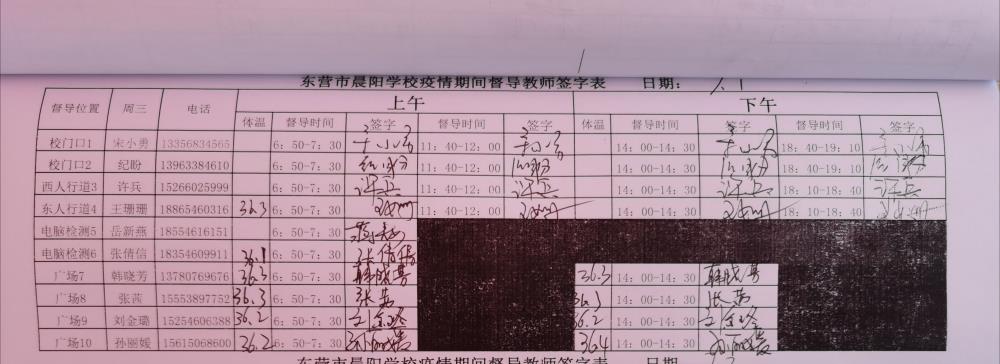 东营市晨阳学校疫情期间督导教师签字表 日期:
督导位置 周三 电话 上午 下午
体温 督导时间 签字 督导时间 签字 体温 督导时间 签字 督导时间 签字
校门口1 宋小勇 13356834565 6:50-7:30 宋小勇 11:40-12:00 宋小勇 14:00-14:30 宋小勇 18:40-19:10 宋小勇
校门口2 纪盼 13963384610 6:50-7:30 纪盼 11:40-12:00 纪盼 14:00-14:30 纪盼 18:10-18:40 纪盼
西人行道3 许兵 15266025999 6:50-7:30 许兵 11:40-12:00 许兵 14:00-14:30 许兵 18:10-18:40 许兵
东人行道4 王珊珊 18865460316 36.3 6:50-7:30 王珊珊 11:40-12:00 王珊珊 14:00-14:30 王珊珊 18:10-18:40 王珊珊
电脑检测5 岳新燕 18554616151 6:50-7:30
电脑检测6 张倩信 18354609911 36.1 6:50-7:30 张倩信
广场7 韩晓芳 13780769676 36.3 6:50-7:30 韩晓芳 36.3 14:00-14:30 韩晓芳
广场8 张茜 15553897752 36.3 6:50-7:30 张茜 14:00-14:30 张茜
广场9 刘金璐 15254606388 36.2 6:50-7:30 刘金璐 36.2 14:00-14:30 刘金璐
广场10 孙丽媛 15615068600 36.2 6:50-7:30 孙丽媛 36.4 14:00-14:30 孙丽媛
东营市晨阳学校疫情期间督导教师签字表 日期: